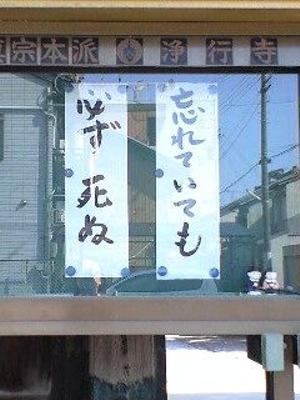 真宗本派 浄行寺
忘れていても
必ず死ぬ